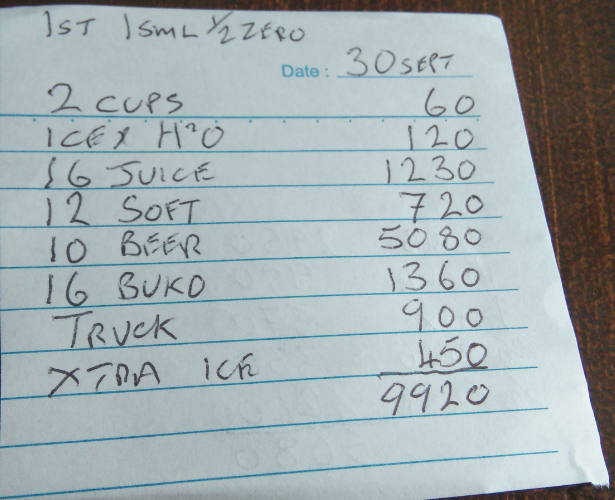 1ST 1SML 1/2 ZERO
Date: 30 SEPT
2 CUPS 60
ICE X H2O 120
16 JUICE 1230
12 SOFT 720
10 BEER 5080
16 BUKO 1360
TRUCK 900
XTRA ICE 450
9920